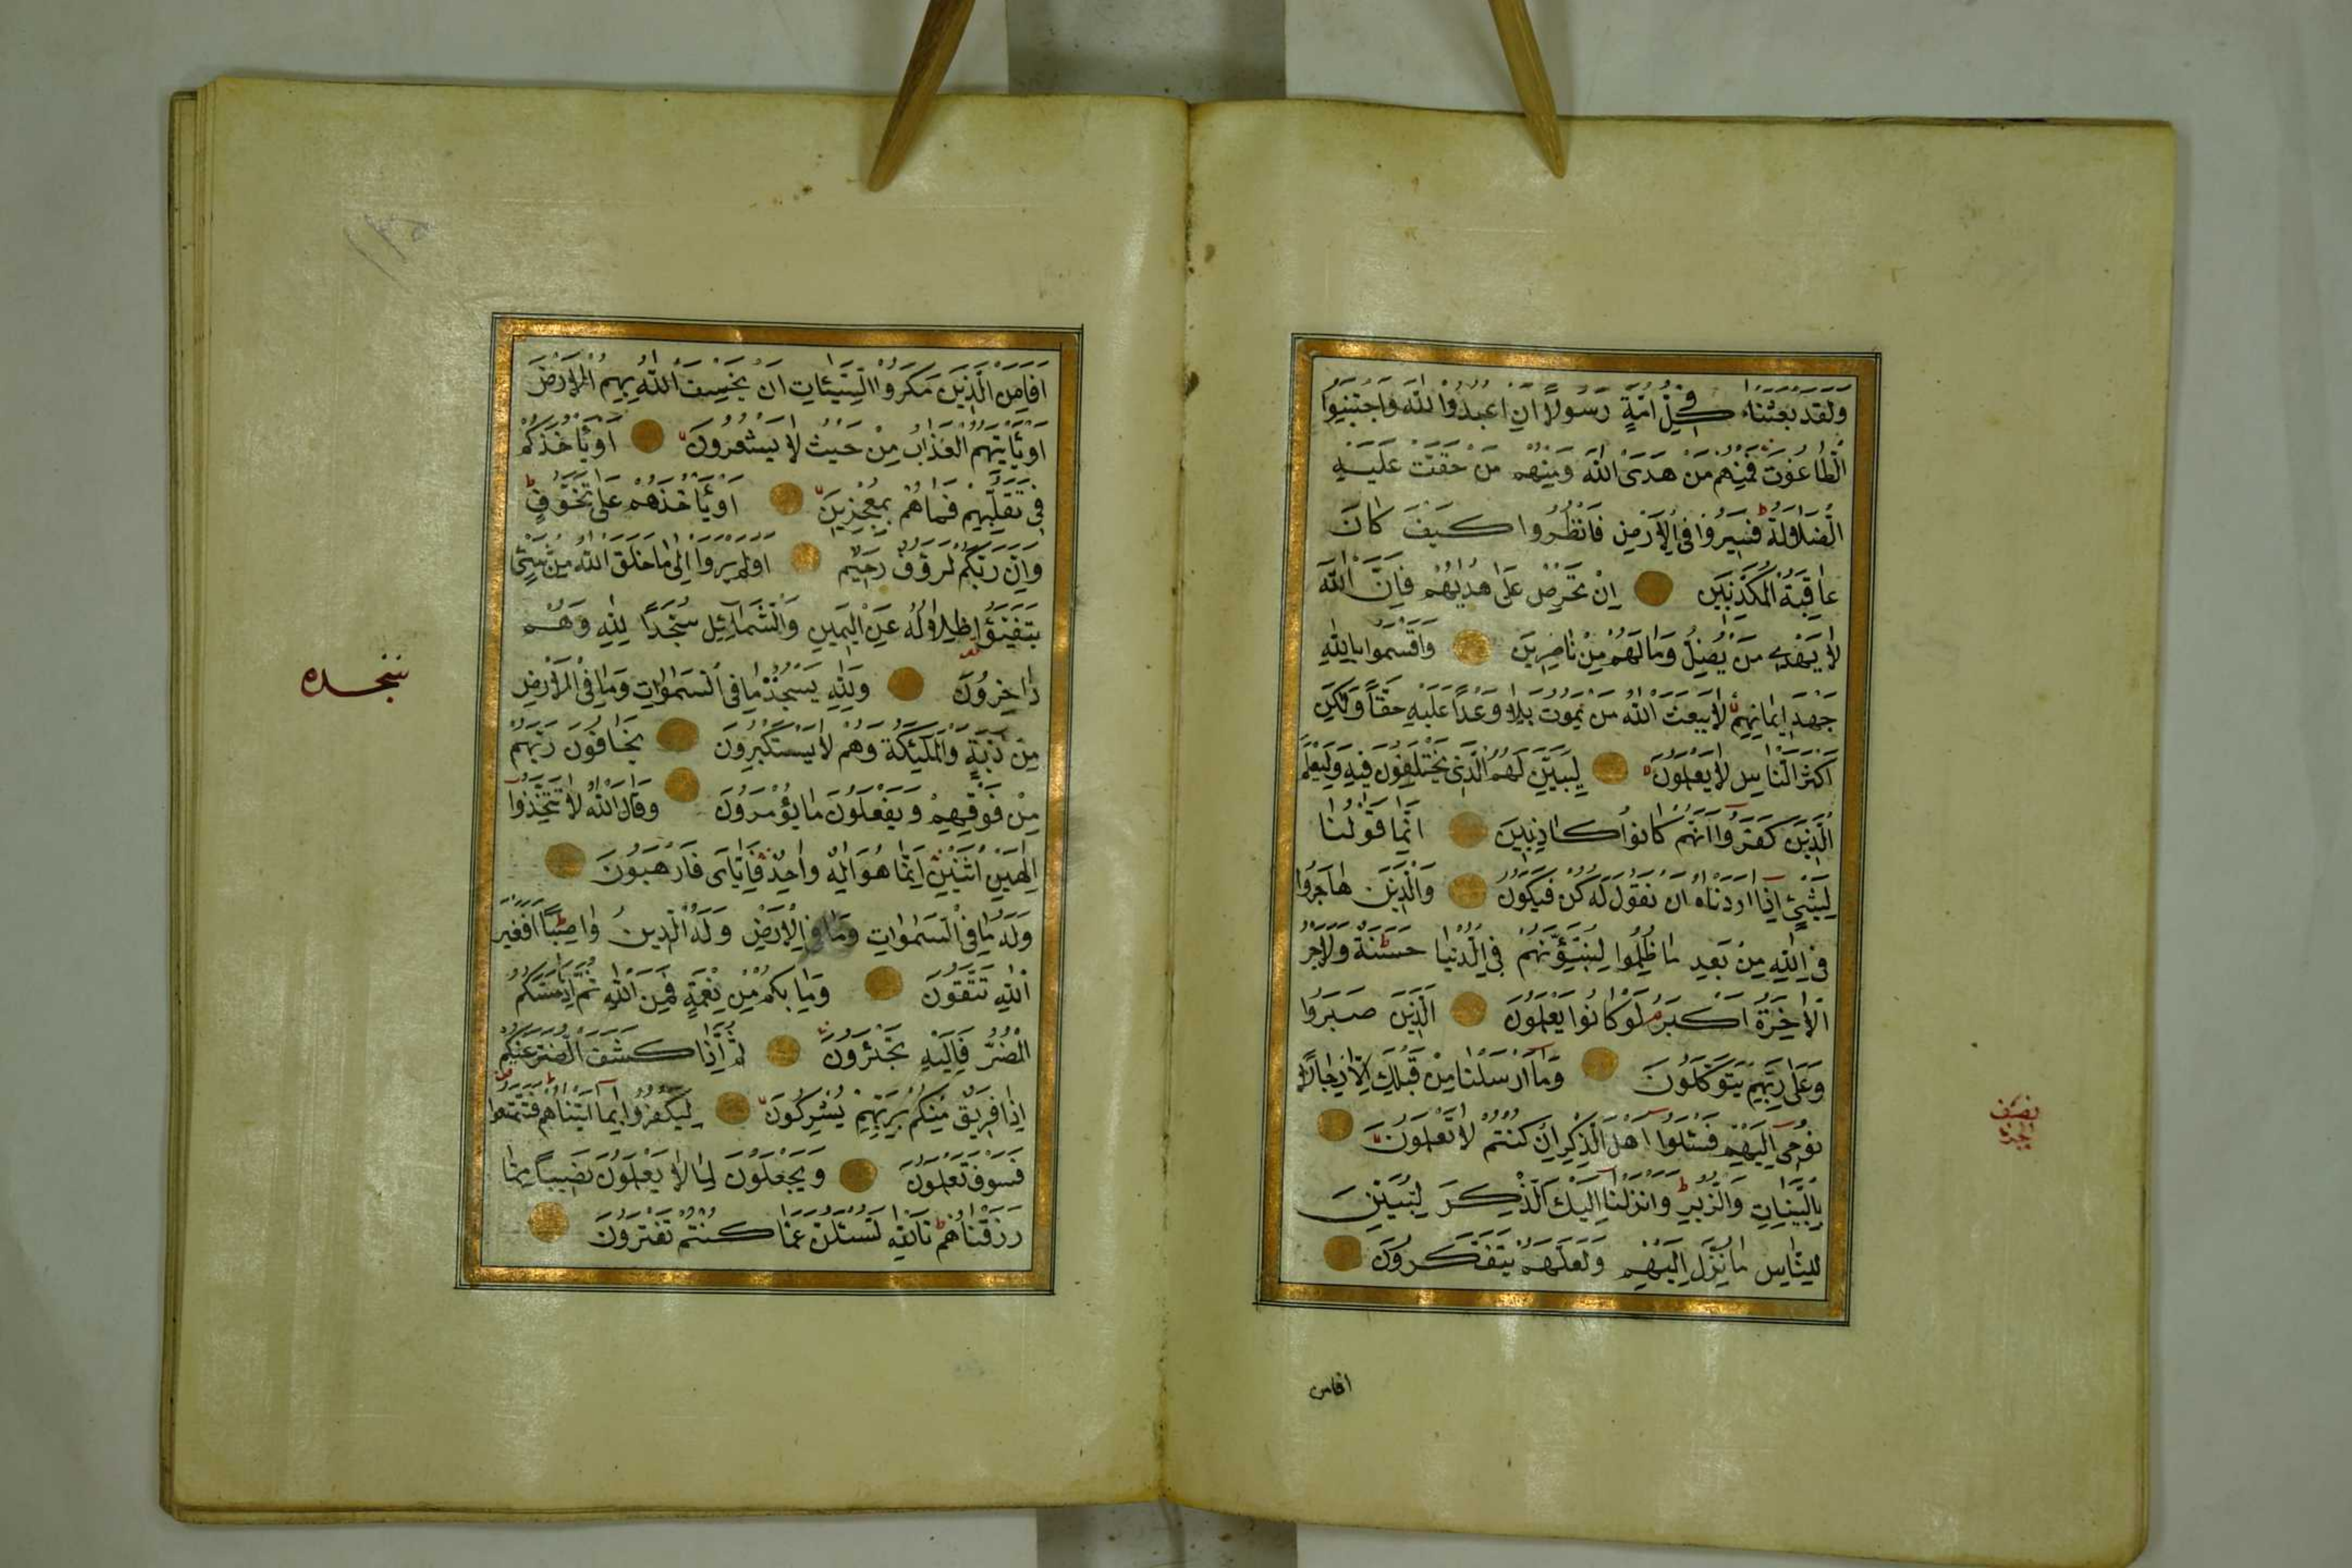 وَلَقَدْ بَعَثْنَا فِي كُلِّ اُمَّةٍ رَسُولًا اَنِ اعْبُدُوا اللّٰهَ وَاجْتَنِبُوا
الطَّاغُوتَ فَمِنْهُمْ مَنْ هَدَى اللّٰهُ وَمِنْهُمْ مَنْ حَقَّتْ عَلَيْهِ
الضَّلَالَةُ ط فَسِيرُوا فِي الْاَرْضِ فَانْظُرُوا كَيْفَ كَانَ
عَاقِبَةُ الْمُكَذِّبِينَ اِنْ تَحْرِصْ عَلٰى هُدٰيهُمْ فَاِنَّ اللّٰهَ
لَا يَهْدِي مَنْ يُضِلُّ وَمَا لَهُمْ مِنْ نَاصِرِينَ وَاَقْسَمُوا بِاللّٰهِ
جَهْدَ اَيْمَانِهِمْ لَا يَبْعَثُ اللّٰهُ مَنْ يَمُوتُ بَلٰى وَعْدًا عَلَيْهِ حَقًّا وَلٰكِنَّ
اَكْثَرَ النَّاسِ لَا يَعْلَمُونَ لِيُبَيِّنَ لَهُمُ الَّذِي يَخْتَلِفُونَ فِيهِ وَلِيَعْلَمَ
الَّذِينَ كَفَرُوا اَنَّهُمْ كَانُوا كَاذِبِينَ اِنَّمَا قَوْلُنَا
لِشَيْءٍ اِذَا اَرَدْنَاهُ اَنْ نَقُولَ لَهُ كُنْ فَيَكُونُ وَالَّذِينَ هَاجَرُوا
فِي اللّٰهِ مِنْ بَعْدِ مَا ظُلِمُوا لَنُبَوِّئَنَّهُمْ فِي الدُّنْيَا حَسَنَةً ط وَلَاَجْرُ
الْاٰخِرَةِ اَكْبَرُ م لَوْ كَانُوا يَعْلَمُونَ الَّذِينَ صَبَرُوا
وَعَلٰى رَبِّهِمْ يَتَوَكَّلُونَ وَمَا اَرْسَلْنَا مِنْ قَبْلِكَ اِلَّا رِجَالًا
نُوحِي اِلَيْهِمْ فَسْئَلُوا اَهْلَ الذِّكْرِ اِنْ كُنْتُمْ لَا تَعْلَمُونَ
بِالْبَيِّنَاتِ وَالزُّبُرِ ط وَاَنْزَلْنَا اِلَيْكَ الذِّكْرَ لِتُبَيِّنَ
لِلنَّاسِ مَا نُزِّلَ اِلَيْهِمْ وَلَعَلَّهُمْ يَتَفَكَّرُونَ
افامن
اَفَاَمِنَ الَّذِينَ مَكَرُوا السَّيِّئَاتِ اَنْ يَخْسِفَ اللّٰهُ بِهِمُ الْاَرْضَ
اَوْ يَأْتِيَهُمُ الْعَذَابُ مِنْ حَيْثُ لَا يَشْعُرُونَ اَوْ يَأْخُذَكُمْ
فِي تَقَلُّبِهِمْ فَمَا هُمْ بِمُعْجِزِينَ اَوْ يَأْخُذَهُمْ عَلٰى تَخَوُّفٍ ط
وَاِنَّ رَبَّكُمْ لَرَؤُفٌ رَحِيمٌ اَوَلَمْ يَرَوْا اِلٰى مَا خَلَقَ اللّٰهُ مِنْ شَيْءٍ
يَتَفَيَّؤُا ظِلَالُهُ عَنِ الْيَمِينِ وَالشَّمَائِلِ سُجَّدًا لِلّٰهِ وَهُمْ
دَاخِرُونَ وَلِلّٰهِ يَسْجُدُ مَا فِي السَّمٰوَاتِ وَمَا فِي الْاَرْضِ
مِنْ دَابَّةٍ وَالْمَلٰئِكَةُ وَهُمْ لَا يَسْتَكْبِرُونَ يَخَافُونَ رَبَّهُمْ
مِنْ فَوْقِهِمْ وَيَفْعَلُونَ مَا يُؤْمَرُونَ وَقَالَ اللّٰهُ لَا تَتَّخِذُوا
اِلٰهَيْنِ اثْنَيْنِ اِنَّمَا هُوَ اِلٰهٌ وَاحِدٌ فَاِيَّايَ فَارْهَبُونَ
وَلَهُ مَا فِي السَّمٰوَاتِ وَمَا فِي الْاَرْضِ وَلَهُ الدِّينُ وَاصِبًا ط اَفَغَيْرَ
اللّٰهِ تَتَّقُونَ وَمَا بِكُمْ مِنْ نِعْمَةٍ فَمِنَ اللّٰهِ ثُمَّ اِذَا مَسَّكُمُ
الضُّرُّ فَاِلَيْهِ تَجْئَرُونَ ثُمَّ اِذَا كَشَفَ الضُّرَّ عَنْكُمْ
اِذَا فَرِيقٌ مِنْكُمْ بِرَبِّهِمْ يُشْرِكُونَ لِيَكْفُرُوا بِمَا اٰتَيْنَاهُمْ ط فَتَمَتَّعُوا
فَسَوْفَ تَعْلَمُونَ وَيَجْعَلُونَ لِمَا لَا يَعْلَمُونَ نَصِيبًا مِمَّا
رَزَقْنَاهُمْ ط تَاللّٰهِ لَتُسْئَلُنَّ عَمَّا كُنْتُمْ تَفْتَرُونَ
سجده